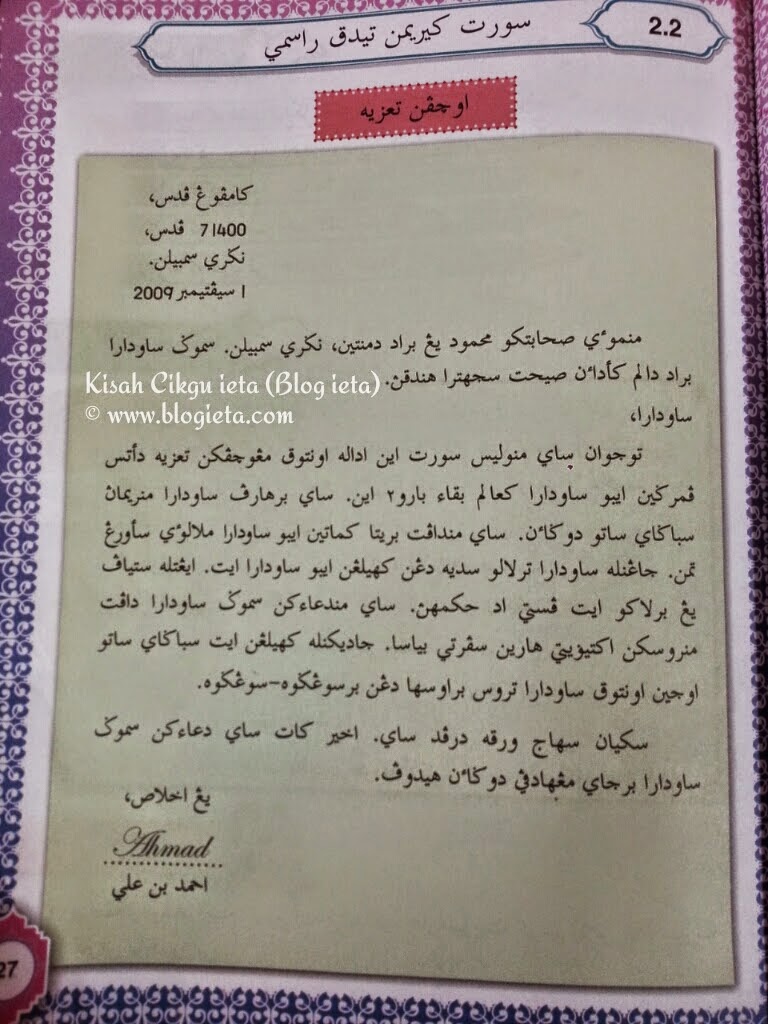 2.2
سورت كيريمن تيدق راسمي
اوچڤن تعزيه
كامڤوڠ ڤدس،
71400 ڤدس،
نݢري سمبيلن.
1 سيڤتيمبر 2009
منموءي صحابتكو محمود يڠ براد دمنتين، نݢري سمبيلن. سموݢ ساودارا
براد دالم كأداءن صيحت سجهترا هندقڽ.
Kisah Cikgu ieta (Blog ieta)
© www.blogieta.com
ساودارا،
توجوان ساي منوليس سورت اين اداله اونتوق مڠوچڤكن تعزيه دأتس
ڤمرݢين ايبو ساودارا كعالم بقاء بارو٢ اين. ساي برهارڤ ساودارا منريماڽ
سباݢاي ساتو دوݢاءن. ساي منداڤت بريتا كماتين ايبو ساودارا ملالوءي سأورڠ
تمن. جاڠنله ساودارا ترلالو سديه دڠن كهيلڠن ايبو ساودارا ايت. ايڠتله ستياڤ
يڠ برلاكو ايت ڤستي اد حكمهڽ. ساي مندعاءكن سموݢ ساودارا داڤت
منروسكن اكتيۏيتي هارين سڤرتي بياسا. جاديكنله كهيلڠن ايت سباݢاي ساتو
اوجين اونتوق ساودارا تروس براوسها دڠن برسوڠݢوه-سوڠݢوه.
سكيان سهاج ورقه درڤد ساي. اخير كات ساي دعاءكن سموݢ
ساودارا برجاي مڠهادڤي دوݢاءن هيدوڤ.
يڠ اخلاص،
Ahmad
احمد بن علي
27